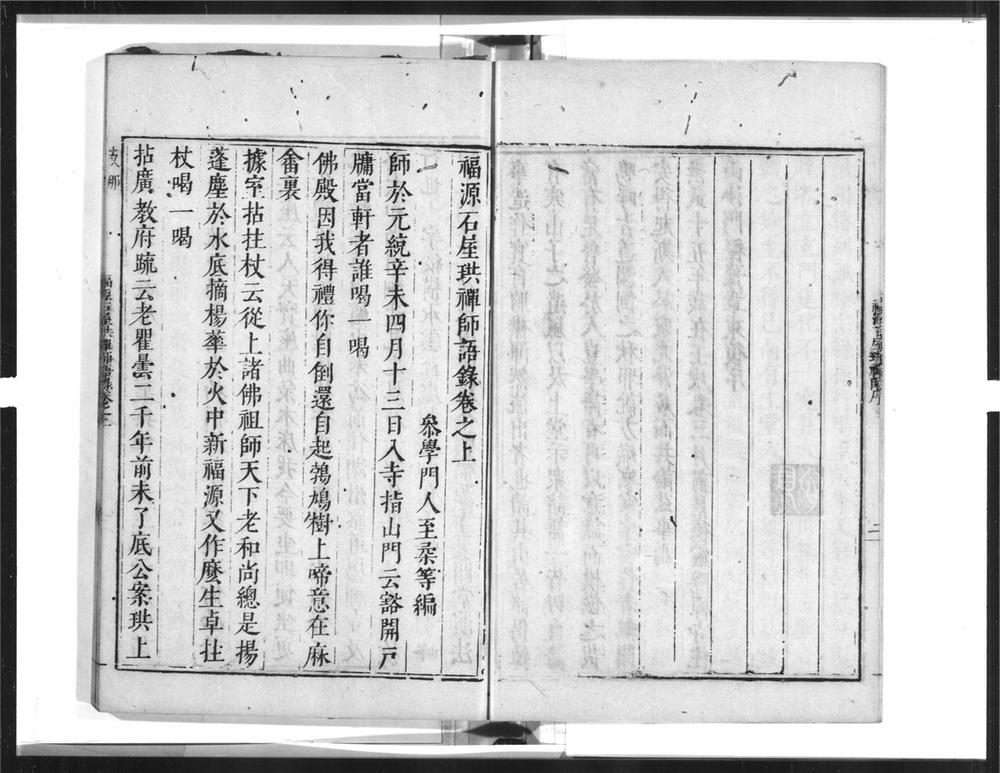 福源石屋珙禪師語錄卷之上
叅學門人至柔等編
師於元統辛未四月十三日入寺指山門云豁開戶
牗當軒者誰喝一喝
佛殿因我得禮你自倒還自起鵓鳩樹上啼意在麻
畬裏
據室拈拄杖云從上諸佛祖師天下老和尚總是揚
蓬塵於水底摘楊華於火中新福源又作麼生卓拄
杖喝一喝
拈廣教府疏云老瞿曇二千年前未了底公案珙上
福源石屋珙禪師語錄卷之上